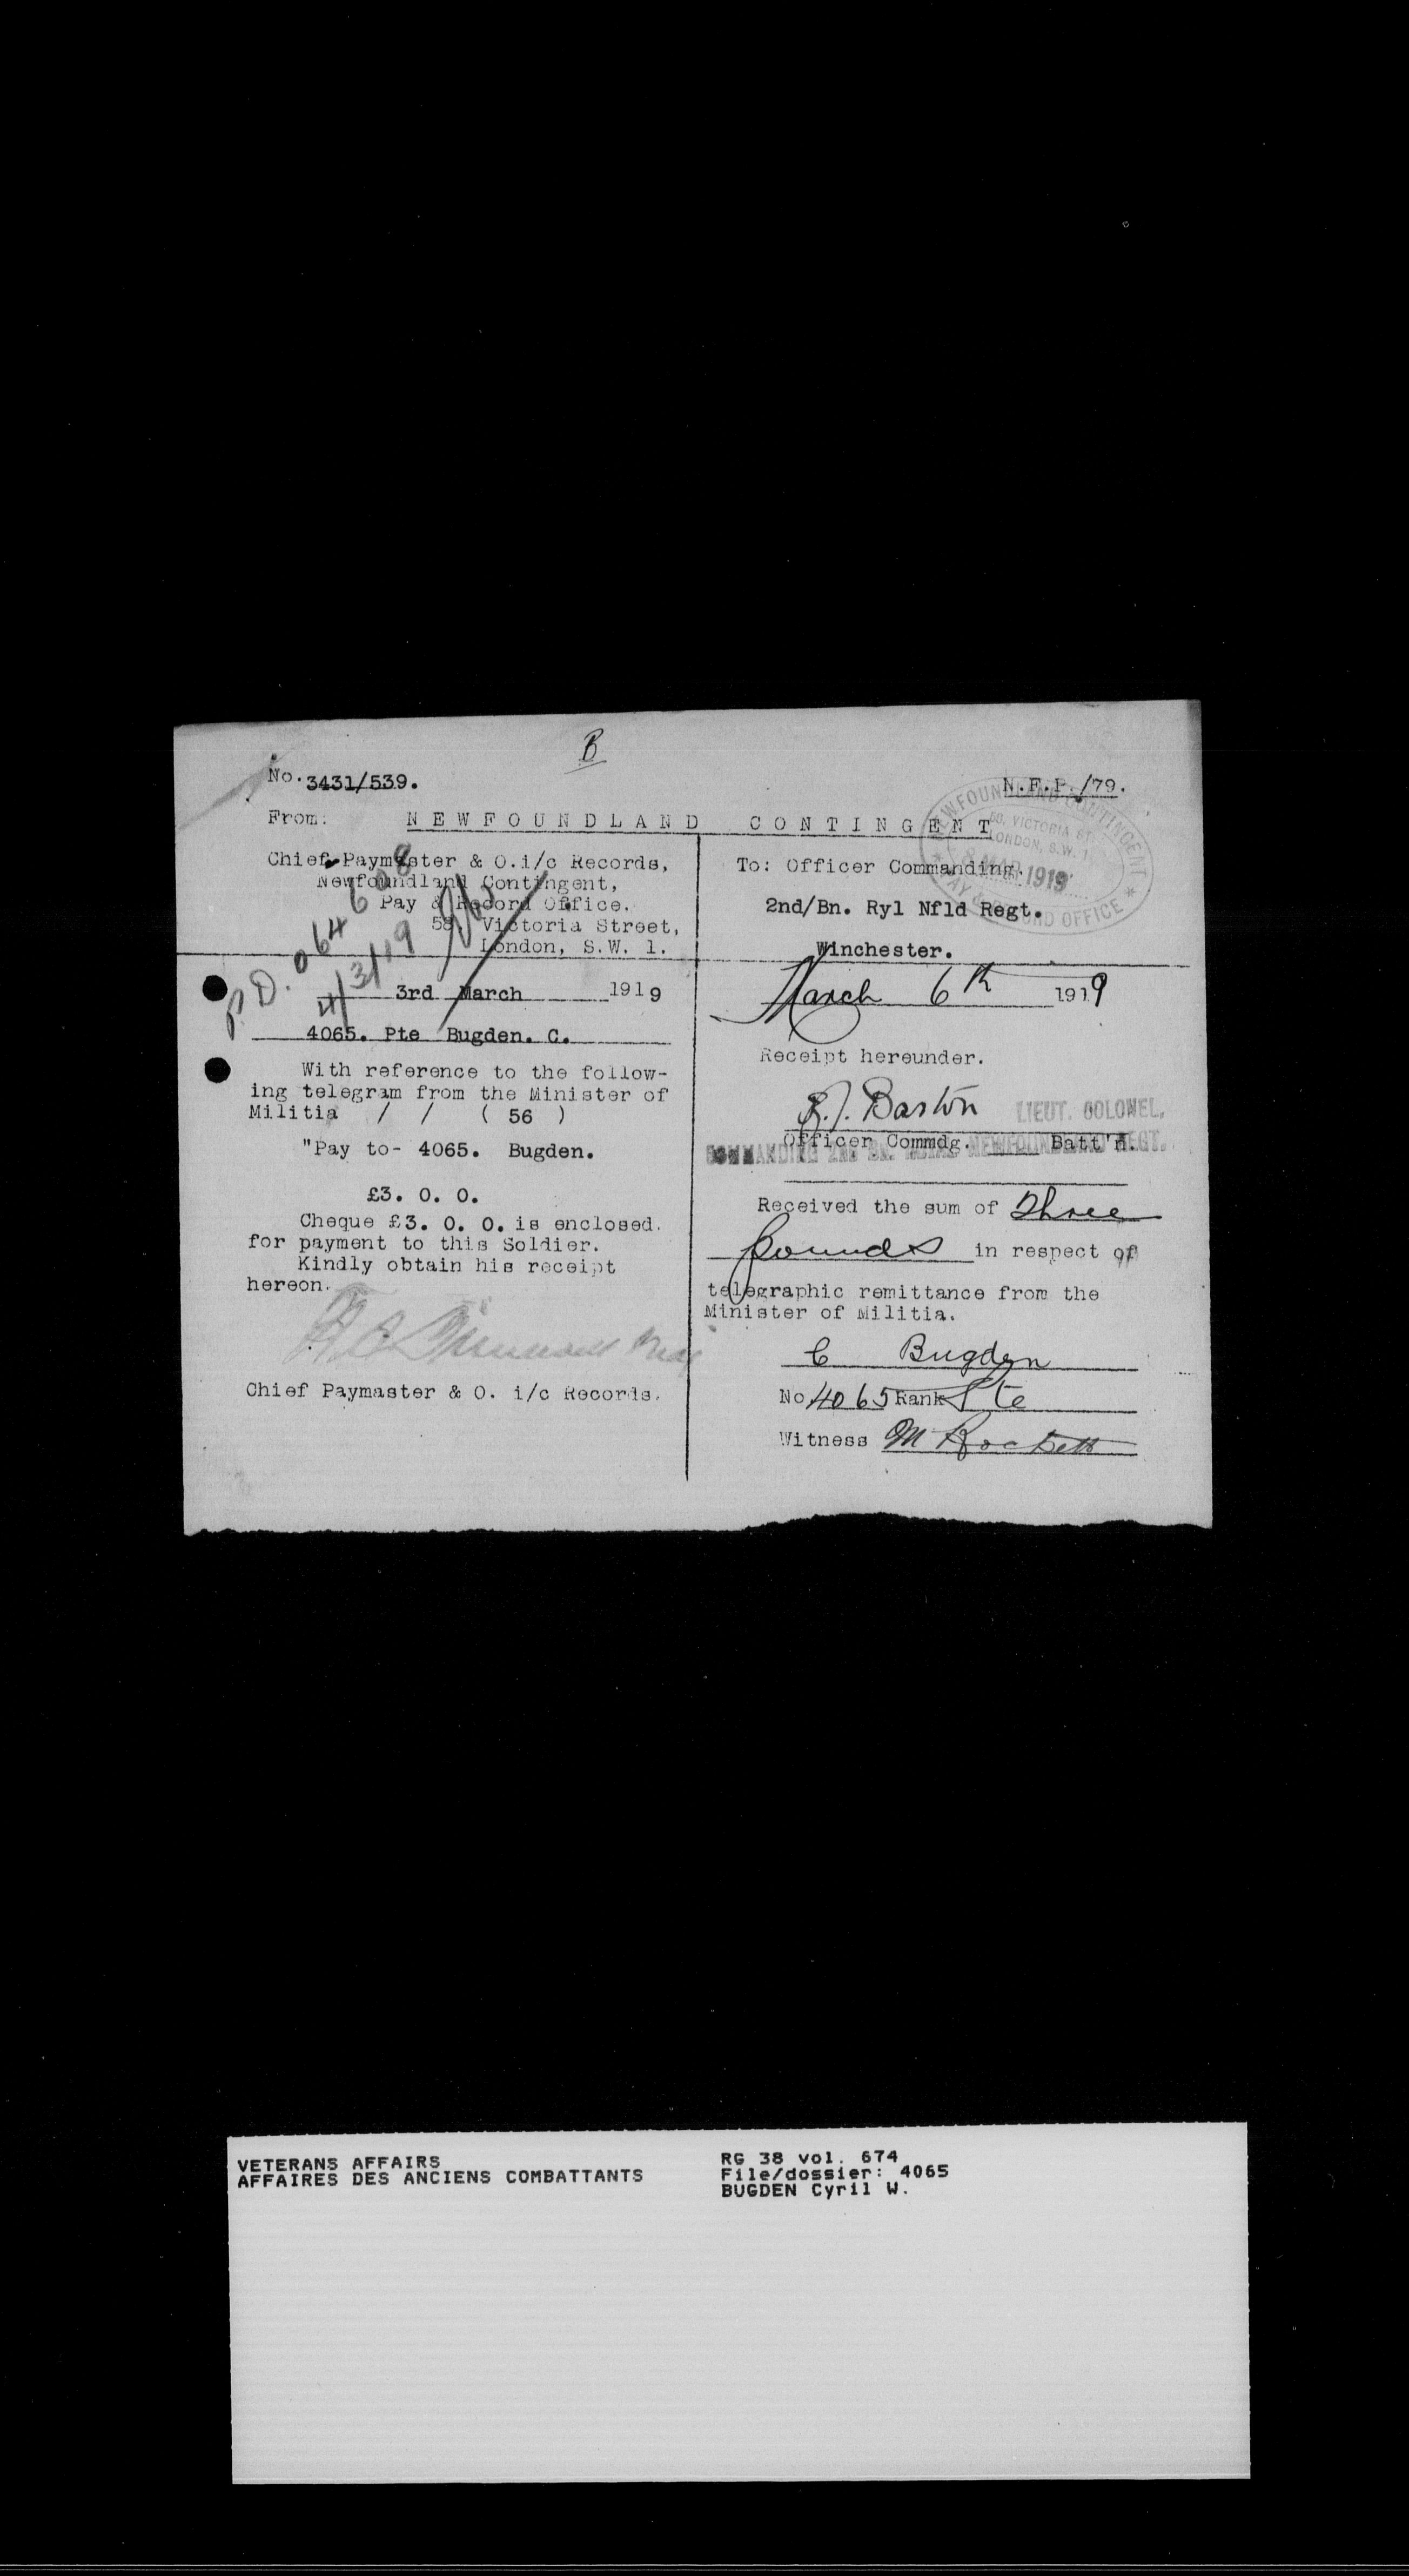 B
No. 3431/539.
N.F.P./79.
From:
NEWFOUNDLAND CONTINGENT
Chief Paymaster & O.i/c Records,
Newfoundland Contingent,
Pay & Record Office.
58, Victoria Street,
London, S.W. 1.
P.D. 064608
4/3/19
3rd March 1919
4065. Pte Bugden. C.
With reference to the follow-
ing telegram from the Minister of
Militia / / ( 56 )
"Pay to- 4065. Bugden.
£3. 0. 0.
Cheque £3. 0. 0. is enclosed.
for payment to this Soldier.
Kindly obtain his receipt
hereon.
Chief Paymaster & O. i/c Records.
To: Officer Commanding.
2nd/Bn. Ryl Nfld Regt.
Winchester.
NEWFOUNDLAND CONTINGENT
VICTORIA ST.
LONDON, S.W. 1.
MAR 1919
PAY & RECORD OFFICE
March 6th 1919
Receipt hereunder.
LIEUT. COLONEL,
Officer Commdg. Batt'n.
COMMANDING 2ND BN. ROYAL NEWFOUNDLAND REGT.
Received the sum of Three
pounds in respect of
telegraphic remittance from the
Minister of Militia.
C Bugden
No 4065 Rank Pte
Witness M Rockett
VETERANS AFFAIRS
AFFAIRES DES ANCIENS COMBATTANTS
RG 38 vol. 674
File/dossier: 4065
BUGDEN Cyril W.